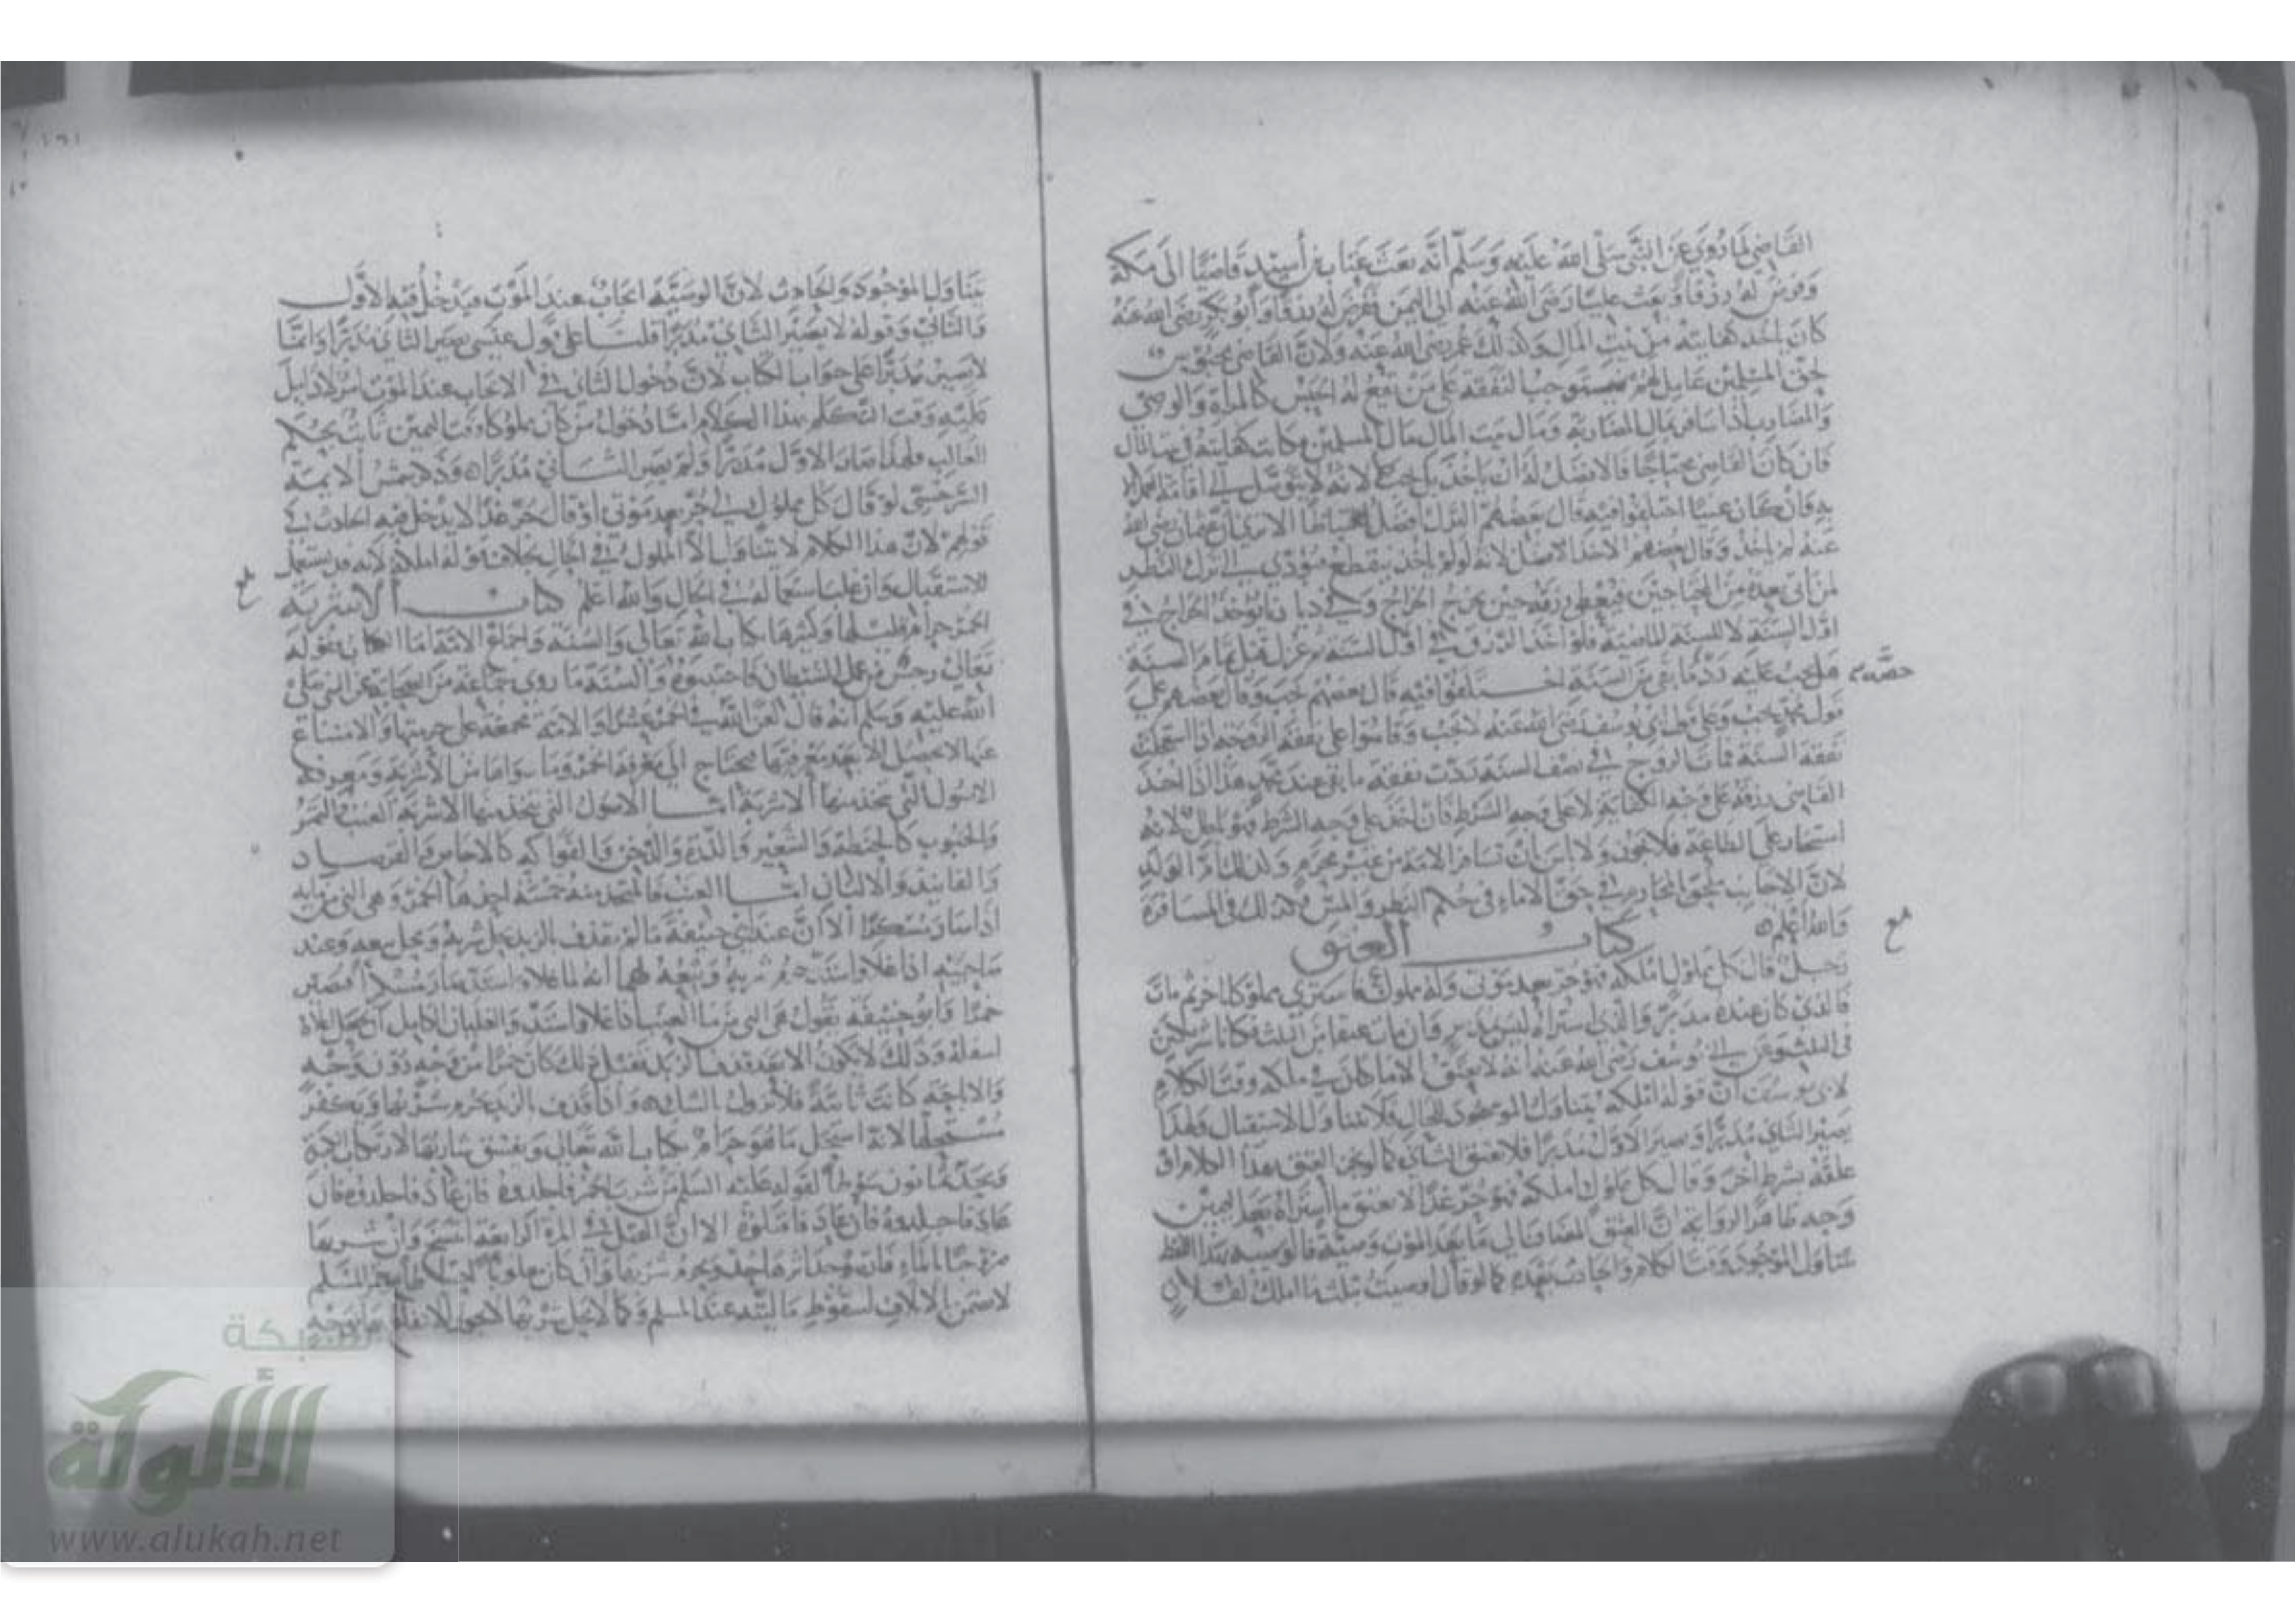 القاضي لما روي عن النبي صلى الله عليه وسلم أنه بعث عتاب بن أسيد قاضيا الى مكة
وفرض له رزقا وبعث عليا رضي الله عنه الى اليمن وفرض له رزقا وأبو بكر رضي الله عنه
كان يأخذ كفايته من بيت المال وكذلك عمر رضي الله عنه ولان القاضي محبوس
لحق المسلمين عامل لهم فيستوجب النفقة على من يقع له الحبس كالمرأة والوصي
والمضارب اذا سافر بمال المضاربة ومال بيت المال مال المسلمين فكانت كفايته في بيت المال
فان كان القاضي محتاجا فالافضل له ان ياخذ بل يجب لانه لا يتوصل الى اقامة
فان كان غنيا اختلفوا فيه قال بعضهم الترك افضل احتياطا الا يرى ان عثمان رضي الله
عنه لم ياخذ وقال بعضهم الاخذ افضل لانه لو لم ياخذ ينقطع فيؤدي الى ترك النظر
لمن ياتي بعده من المحتاجين فيعطى رزقه حين يخرج الخراج وفي ديارنا يؤخذ الخراج في
اول السنة لا للسنة الماضية فلو اخذ الرزق في اول السنة ثم عزل قبل تمام السنة
هل يجب عليه رد ما بقي من السنة اختلفوا فيه قال بعضهم يجب وقال بعضهم على
حصة
قول محمد يجب وعلى قول ابي يوسف رضي الله عنه لا يجب وقاسوا على نفقة الزوجة اذا استعجلت
نفقة السنة فمات الزوج في نصف السنة ردت نفقة ما بقي عند محمد هذا اذا اخذ
القاضي رزقه على وجه الكفاية لا على وجه الشرط فان اخذ على وجه الشرط فهو باطل لانه
استئجار على الطاعة فلا يجوز ولا باس ان تسافر الامة من غير محرم وكذلك ام الولد
لان الاجانب يلحق بالمحارم في حق الاماء في حكم النظر والمس وكذلك في المسافرة
والله اعلم
كتاب العتق
رجل قال كل مملوك املكه فهو حر بعد موتي وله مملوك فاشترى مملوكا اخر ثم مات
فالذي كان عنده مدبر والذي اشتراه ليس بمدبر وان مات عتقا من الثلث
وعن ابي يوسف رضي الله عنه انه لا يعتق الا ما كان في ملكه وقت الكلام
لابي يوسف ان قوله املكه يتناول الموجود للحال فلا يتناول الاستقبال ولهذا
يصير الثاني مدبرا ويصير الاول مدبرا فلا يعتق الثاني كما لو نجز العتق بهذا الكلام او
علقه بشرط اخر وقال كل مملوك املكه فهو حر غدا لا يعتق ما اشتراه بعد اليمين
وجه ظاهر الرواية ان العتق المضاف الى ما بعد الموت وصية فالوصية بهذا اللفظ
يتناول الموجود وقت الكلام كما لو قال اوصيت بثلث ما املك لفلان
يتناول الموجود والحادث لان الوصية ايجاب عند الموت فيدخل فيه الاول
والثاني وقوله لا يصير الثاني مدبرا قلنا على قول عيسى يصير الثاني مدبرا وانما
لا يصير مدبرا على جواب الكتاب لان دخول الثاني في الايجاب عند الموت
وقت التكلم بهذا الكلام اما دخول من كان مملوكا وقت اليمين ثابت بحكم
الغالب فلهذا صار الاول مدبرا ولم يصر الثاني مدبرا وذكر شمس الائمة
السرخسي لو قال كل مملوك لي حر بعد موتي او قال حر غدا لا يدخل فيه الحادث في
قولهم لان هذا الكلام لا يتناول الا المملوك في الحال بخلاف قوله املكه لانه قد يستعمل
للاستقبال وان غلب استعماله في الحال والله اعلم كتاب الاشربة
الخمر حرام قليلها وكثيرها بكتاب الله تعالى والسنة واجماع الامة اما الكتاب فقوله
تعالى رجس من عمل الشيطان فاجتنبوه والسنة ما روى جماعة من الصحابة عن النبي صلى
الله عليه وسلم انه قال لعن الله في الخمر عشرا والامة مجمعة على حرمتها والامتناع
عنها لا يحصل الا بعد معرفتها فيحتاج الى معرفة الخمر وما سواها من الأشربة ومعرفة
الاصول التي يتخذ منها الاشربة اما الاصول التي يتخذ منها الاشربة العنب والتمر
والحبوب كالحنطة والشعير والذرة والدخن والفواكه كالاجاص والفرصاد
والفانيذ والالبان اما العنب فالمتخذ منه خمسة احدها الخمر وهي الني من مائه
اذا صار مسكرا الا ان عند ابي حنيفة ما لم يقذف بالزبد يحل شربه ويحل بيعه وعند
صاحبيه اذا غلا واشتد حرم شربه وبيعه لهما انه لما غلا واشتد صار مسكرا فيصير
خمرا وابو حنيفة يقول هي الني من ماء العنب اذا غلا واشتد والغليان الكامل ان يجعل اعلاه
اسفله وذلك لا يكون الا بعد قذف الزبد فقبل ذلك كان خمرا من وجه دون وجه
والاباحة كانت ثابتة فلا تزول بالشك واذا قذف بالزبد يحرم شربها ويكفر
مستحلها لانه استحل ما هو حرام بكتاب الله تعالى ويفسق شاربها لارتكاب الحرمة
فيحد ثمانون سوطا لقوله عليه السلم من شرب الخمر فاجلدوه فان عاد فاجلدوه فان
عاد فاجلدوه فان عاد فاقتلوه الا ان القتل في المرة الرابعة انتسخ وان شربها
ممزوجا بالماء
لا يضمن بالاتلاف لسقوط ماليته عند المسلم وكما لا يحل شربها لا يحل الانتفاع بها بوجه
شبكة
الألوكة
www.alukah.net